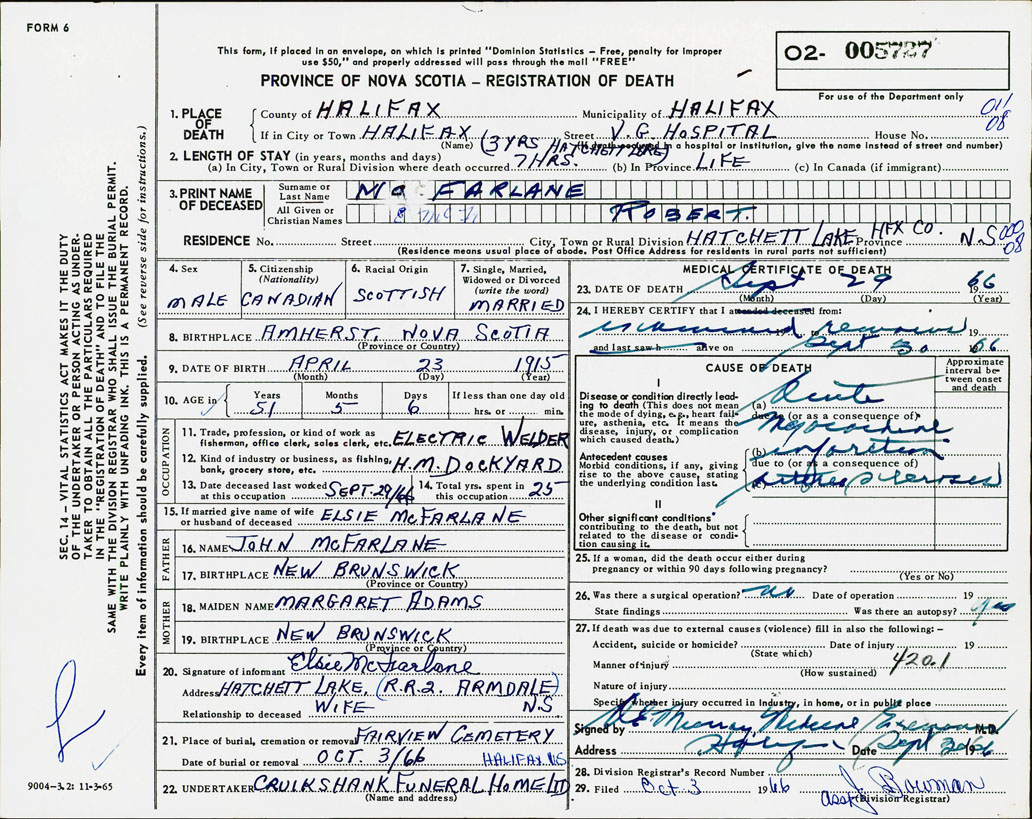 FORM 6
This form, if placed in an envelope, on which is printed "Dominion Statistics – Free, penalty for improper
use $50," and properly addressed will pass through the mail "FREE"
PROVINCE OF NOVA SCOTIA – REGISTRATION OF DEATH
02- 005727
For use of the Department only
011
08
1. PLACE OF DEATH
County of HALIFAX Municipality of HALIFAX
If in City or Town HALIFAX Street V.G. HOSPITAL House No.
(Name) (If death occurred in a hospital or institution, give the name instead of street and number)
(3 YRS HATCHETT LAKE)
2. LENGTH OF STAY (in years, months and days)
(a) In City, Town or Rural Division where death occurred 7 HRS. (b) In Province LIFE (c) In Canada (if immigrant)
3. PRINT NAME OF DECEASED
Surname or Last Name MacFARLANE
All Given or Christian Names ROBERT.
RESIDENCE No. Street City, Town or Rural Division HATCHETT LAKE HFX CO. Province N.S 000
08
(Residence means usual place of abode. Post Office Address for residents in rural parts not sufficient)
4. Sex MALE
5. Citizenship (Nationality) CANADIAN
6. Racial Origin SCOTTISH
7. Single, Married, Widowed or Divorced (write the word) MARRIED
8. BIRTHPLACE AMHERST, NOVA SCOTIA
(Province or Country)
9. DATE OF BIRTH APRIL 23 1915
(Month) (Day) (Year)
10. AGE in Years 51 Months 5 Days 6 If less than one day old hrs. or min.
OCCUPATION
11. Trade, profession, or kind of work as fisherman, office clerk, sales clerk, etc. ELECTRIC WELDER
12. Kind of industry or business, as fishing, bank, grocery store, etc. H.M. DOCKYARD
13. Date deceased last worked at this occupation SEPT. 29/66 14. Total yrs. spent in this occupation 25
15. If married give name of wife or husband of deceased ELSIE McFARLANE
FATHER
16. NAME JOHN McFARLANE
17. BIRTHPLACE NEW BRUNSWICK
(Province or Country)
MOTHER
18. MAIDEN NAME MARGARET ADAMS
19. BIRTHPLACE NEW BRUNSWICK
(Province or Country)
20. Signature of informant Elsie McFarlane
Address HATCHETT LAKE, (R.R.2. ARMDALE) N.S
Relationship to deceased WIFE
21. Place of burial, cremation or removal FAIRVIEW CEMETERY
Date of burial or removal OCT. 3/66 HALIFAX NS
22. UNDERTAKER CRUIKSHANK FUNERAL HOME LTD
(Name and address)
MEDICAL CERTIFICATE OF DEATH
23. DATE OF DEATH Sept 29 1966
(Month) (Day) (Year)
24. I HEREBY CERTIFY that I attended deceased from:
examined remains 19
and last saw h alive on Sept 30 1966
CAUSE OF DEATH
Approximate interval between onset and death
I
Disease or condition directly leading to death (This does not mean the mode of dying, e.g., heart failure, asthenia, etc. It means the disease, injury, or complication which caused death.)
(a) Acute
due to (or as a consequence of)
Myocardial
Antecedent causes
Morbid conditions, if any, giving rise to the above cause, stating the underlying condition last.
(b) infarction
due to (or as a consequence of)
(c)
II
Other significant conditions contributing to the death, but not related to the disease or condition causing it.
25. If a woman, did the death occur either during pregnancy or within 90 days following pregnancy?
(Yes or No)
26. Was there a surgical operation? no Date of operation 19
State findings Was there an autopsy? yes
27. If death was due to external causes (violence) fill in also the following: –
Accident, suicide or homicide? Date of injury 19
(State which)
Manner of injury 420.1
(How sustained)
Nature of injury
Specify whether injury occurred in industry, in home, or in public place
Signed by Murray Medical Examiner M.D.
Address Date Sept 30 1966
28. Division Registrar's Record Number
29. Filed Oct 3 1966 J. Bowman
asst (Division Registrar)
SEC. 14 – VITAL STATISTICS ACT MAKES IT THE DUTY
OF THE UNDERTAKER OR PERSON ACTING AS UNDER-
TAKER TO OBTAIN ALL THE PARTICULARS REQUIRED
IN THE "REGISTRATION OF DEATH" AND TO FILE THE
SAME WITH THE DIVISION REGISTRAR WHO SHALL ISSUE THE BURIAL PERMIT.
WRITE PLAINLY WITH UNFADING INK. THIS IS A PERMANENT RECORD.
Every item of information should be carefully supplied. (See reverse side for instructions.)
9004-3.2: 11-3-65